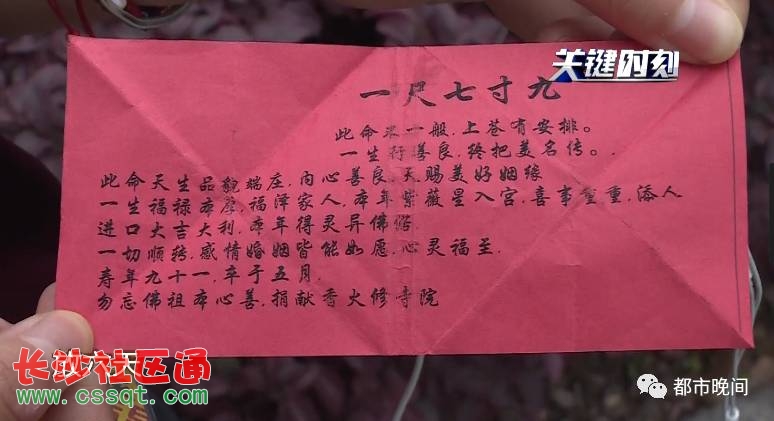 关键时刻
一尺七寸九
此命不一般.上苍有安排。
一生行善良.终把美名传。
此命天生品貌端庄.内心善良.天赐美好姻缘
一生福禄本厚.福泽家人.本年紫薇星入宫.喜事重重,添人
进口大吉大利.本年得灵异佛
一切顺转.感情婚姻皆能如愿.心灵福至.
寿年九十一.卒于五月.
勿忘佛祖本心善.捐献香火修寺院
长沙社区通
www.cssqt.com
都市晚间